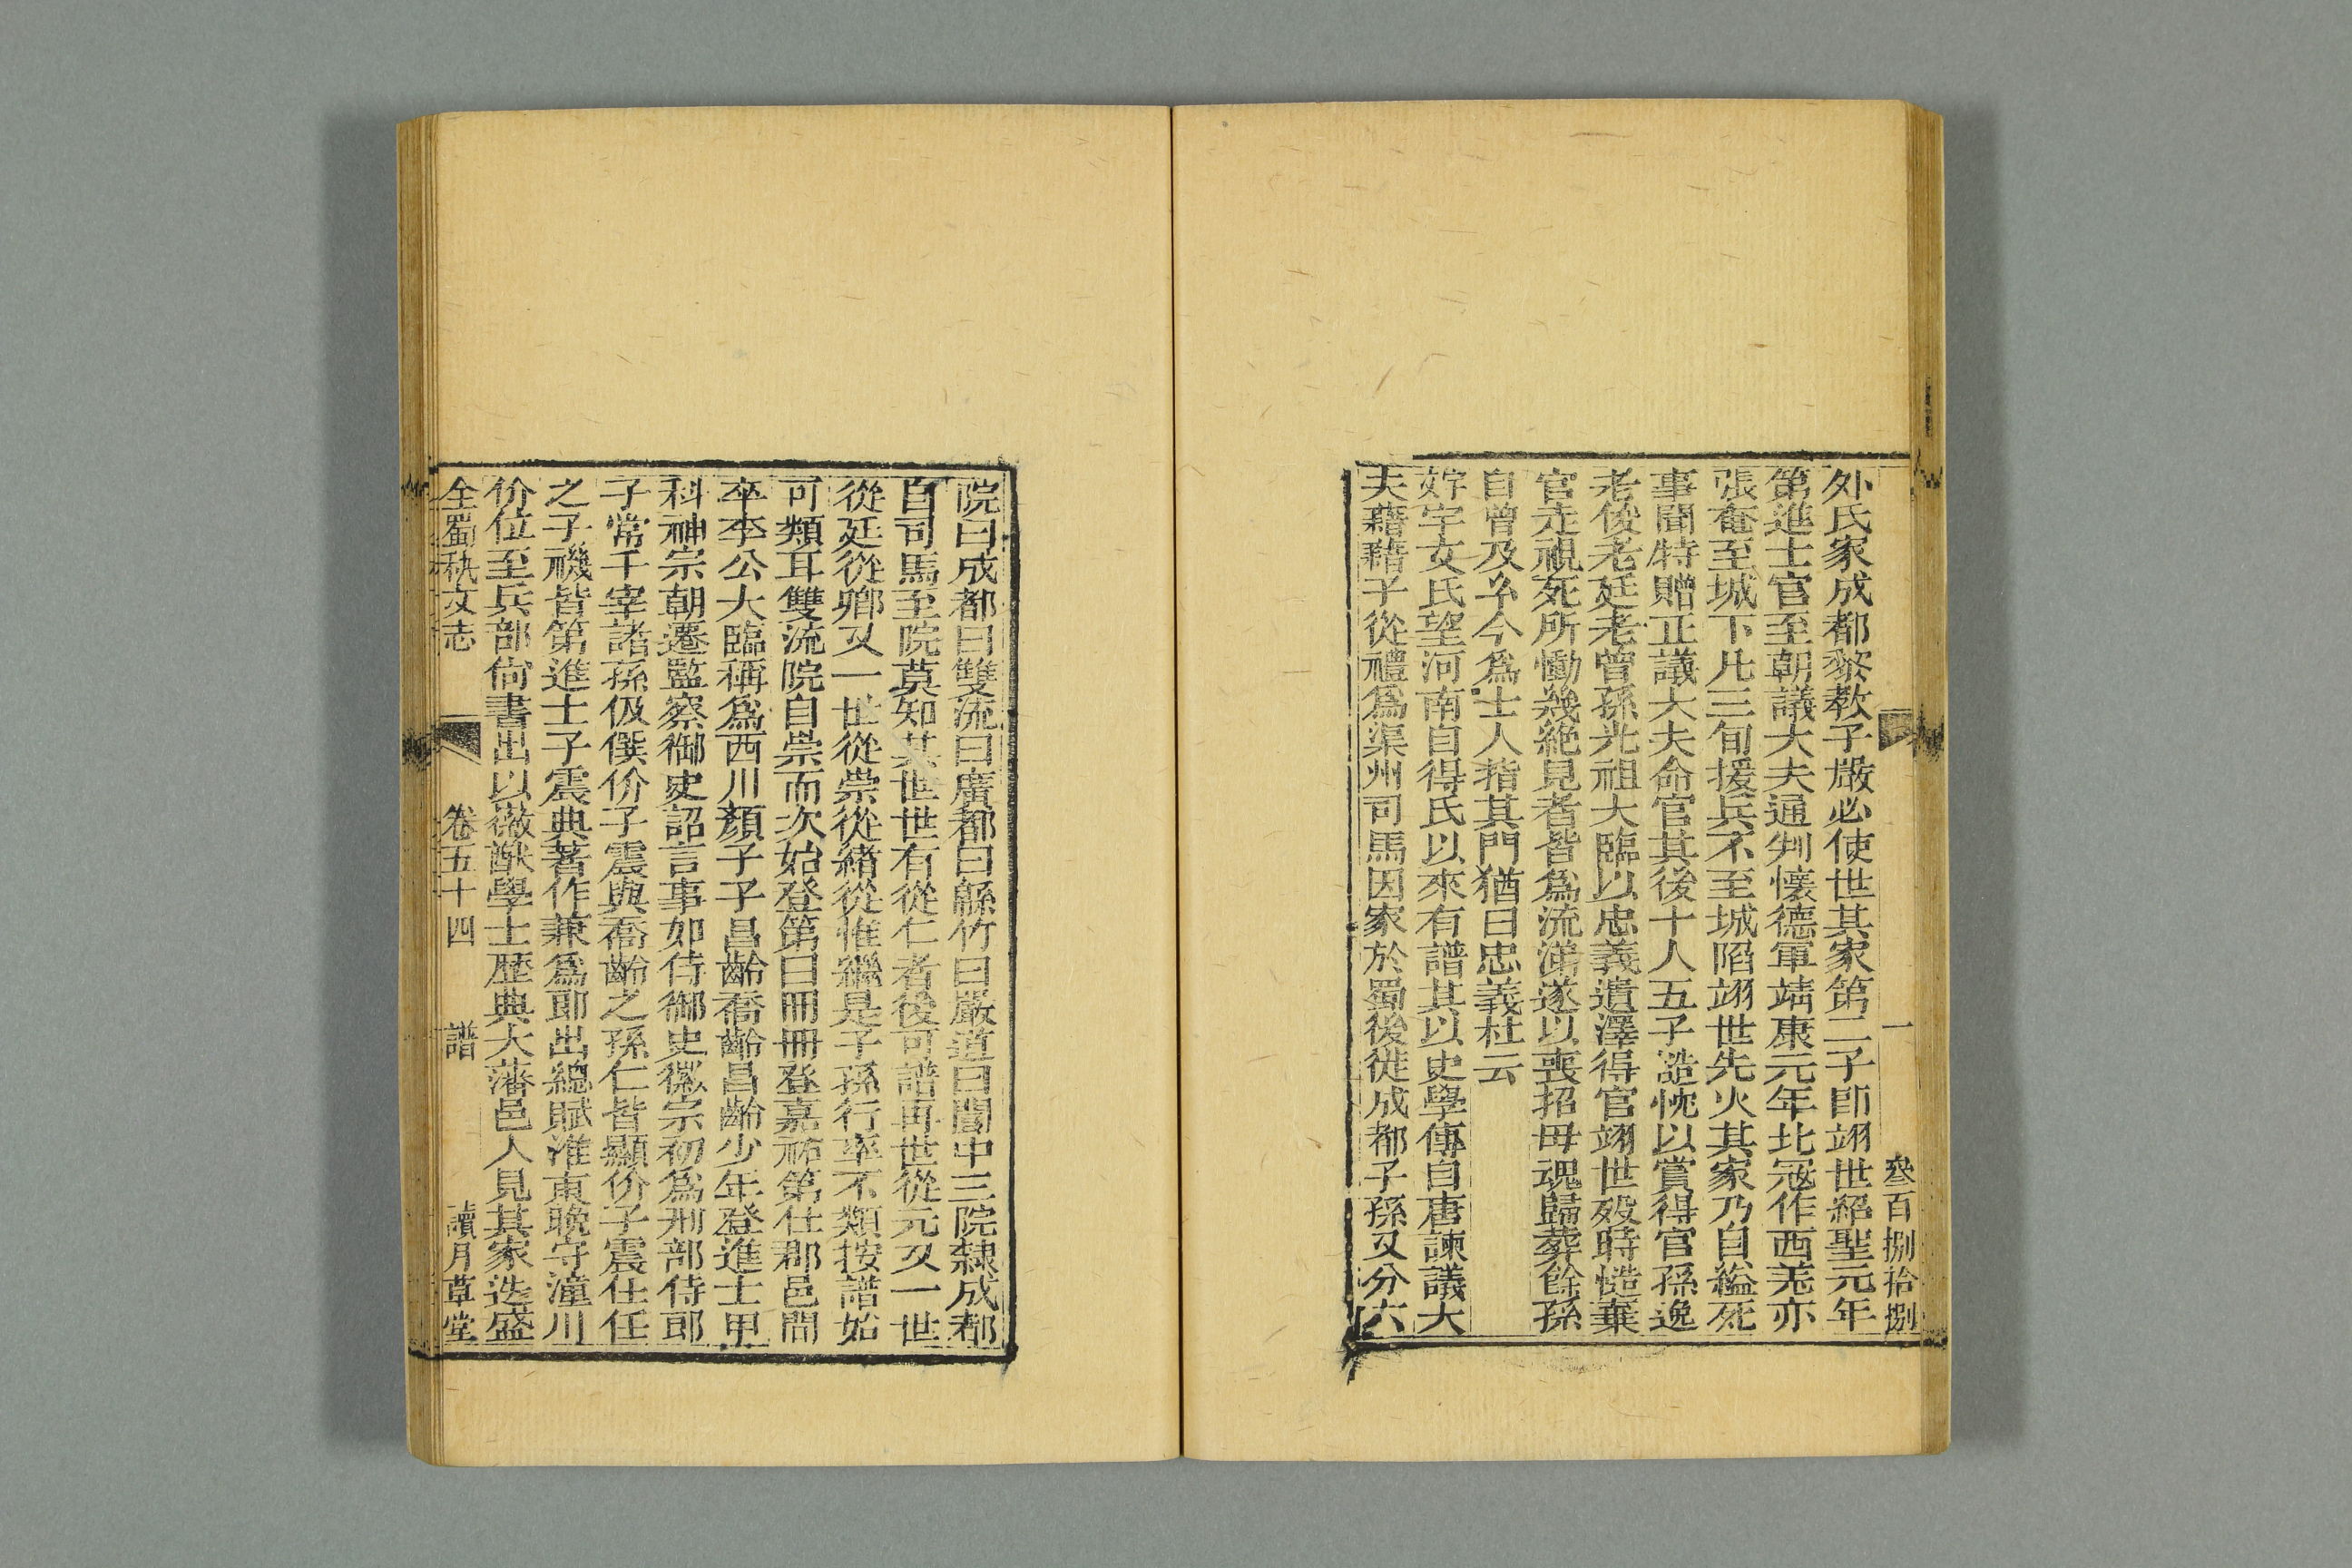 一 叄百捌拾捌
外氏家成都黎教子嚴必使世其家第二子卽翊世紹聖元年
第進士官至朝議大夫通判懷德軍靖康元年北冦作西羌亦
張奄至城下凡三旬援兵不至城陷翊世先火其家乃自縊死
事聞特贈正議大夫命官其後十人五子誥忱以賞得官孫逸
老俊老廷老曾孫光祖大臨以忠義遺澤得官翊世殁時慥棄
官走視死所慟幾絶見者皆爲流涕遂以喪招毋魂歸葬餘孫
自曾及今爲士人指其門猶曰忠義杜云
㚥宇文氏望河南自得氏以來有譜其以史學傳自唐諫議大
夫藉藉子從禮爲渠州司馬因家於蜀後徙成都子孫又分六
院曰成都曰雙流曰廣都曰緜竹曰嚴道曰閬中三院隸成都
自司馬至院莫知其世世有從仁者後可譜再世從元又一世
從廷從鄉又一世從崇從緖從惟繼是子孫行率不類按譜始
可類耳雙流院自崇而次始登第曰冊冊登嘉祐第仕郡邑間
卒李公大臨稱爲西川顏子子昌齡喬齡昌齡少年登進士甲
科神宗朝遷監察御史詔言事如侍御史徽宗初爲刑部侍郎
子常千宰諸孫伋僎价子震與喬齡之孫仁皆顯价子震仕任
之子禨皆第進士子震典著作兼爲郎出總賦淮東晩守潼川
价位至兵部尙書出以徽猷學士歴典大藩邑人見其家迭盛
全蜀秇文志 卷五十四 譜 讀月草堂